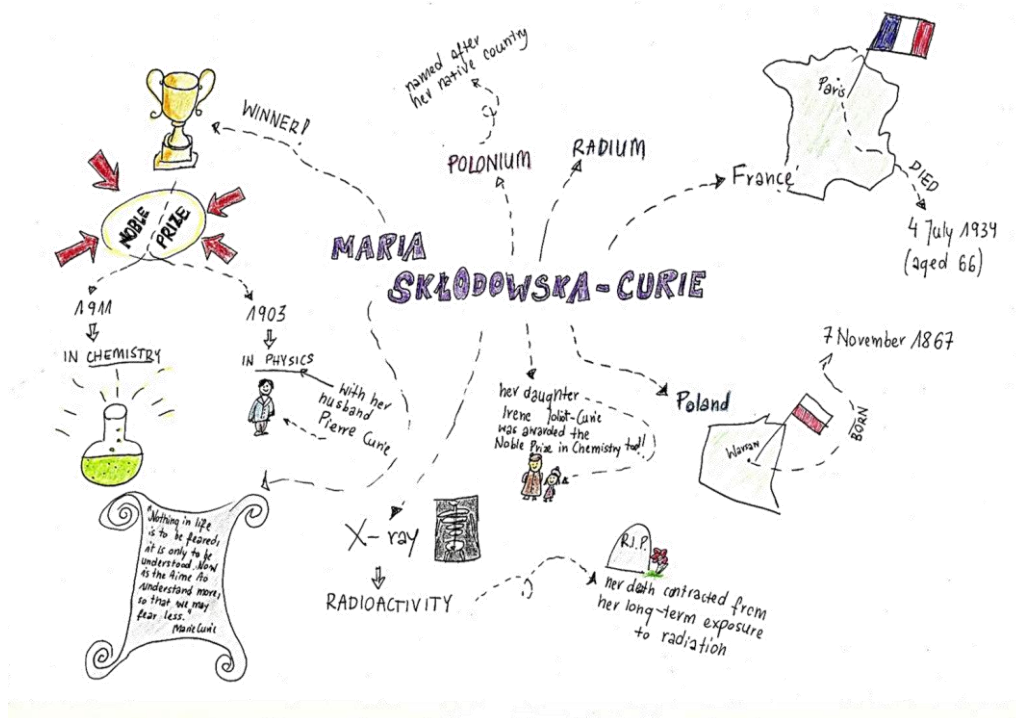 MARIA
SKŁODOWSKA-CURIE
WINNER!
NOBLE
PRIZE
1911
IN CHEMISTRY
1903
IN PHYSICS
with her
husband
Pierre Curie
"Nothing in life
is to be feared,
it is only to be
understood. Now
is the time to
understand more,
so that we may
fear less."
Marie Curie
named after
her native country
POLONIUM
RADIUM
France
Paris
DIED
4 July 1934
(aged 66)
7 November 1867
BORN
Poland
Warsaw
her daughter
Irene Joliot-Curie
was awarded the
Noble Prize in Chemistry too!!
X-ray
RADIOACTIVITY
R.I.P.
her death contracted from
her long-term exposure
to radiation